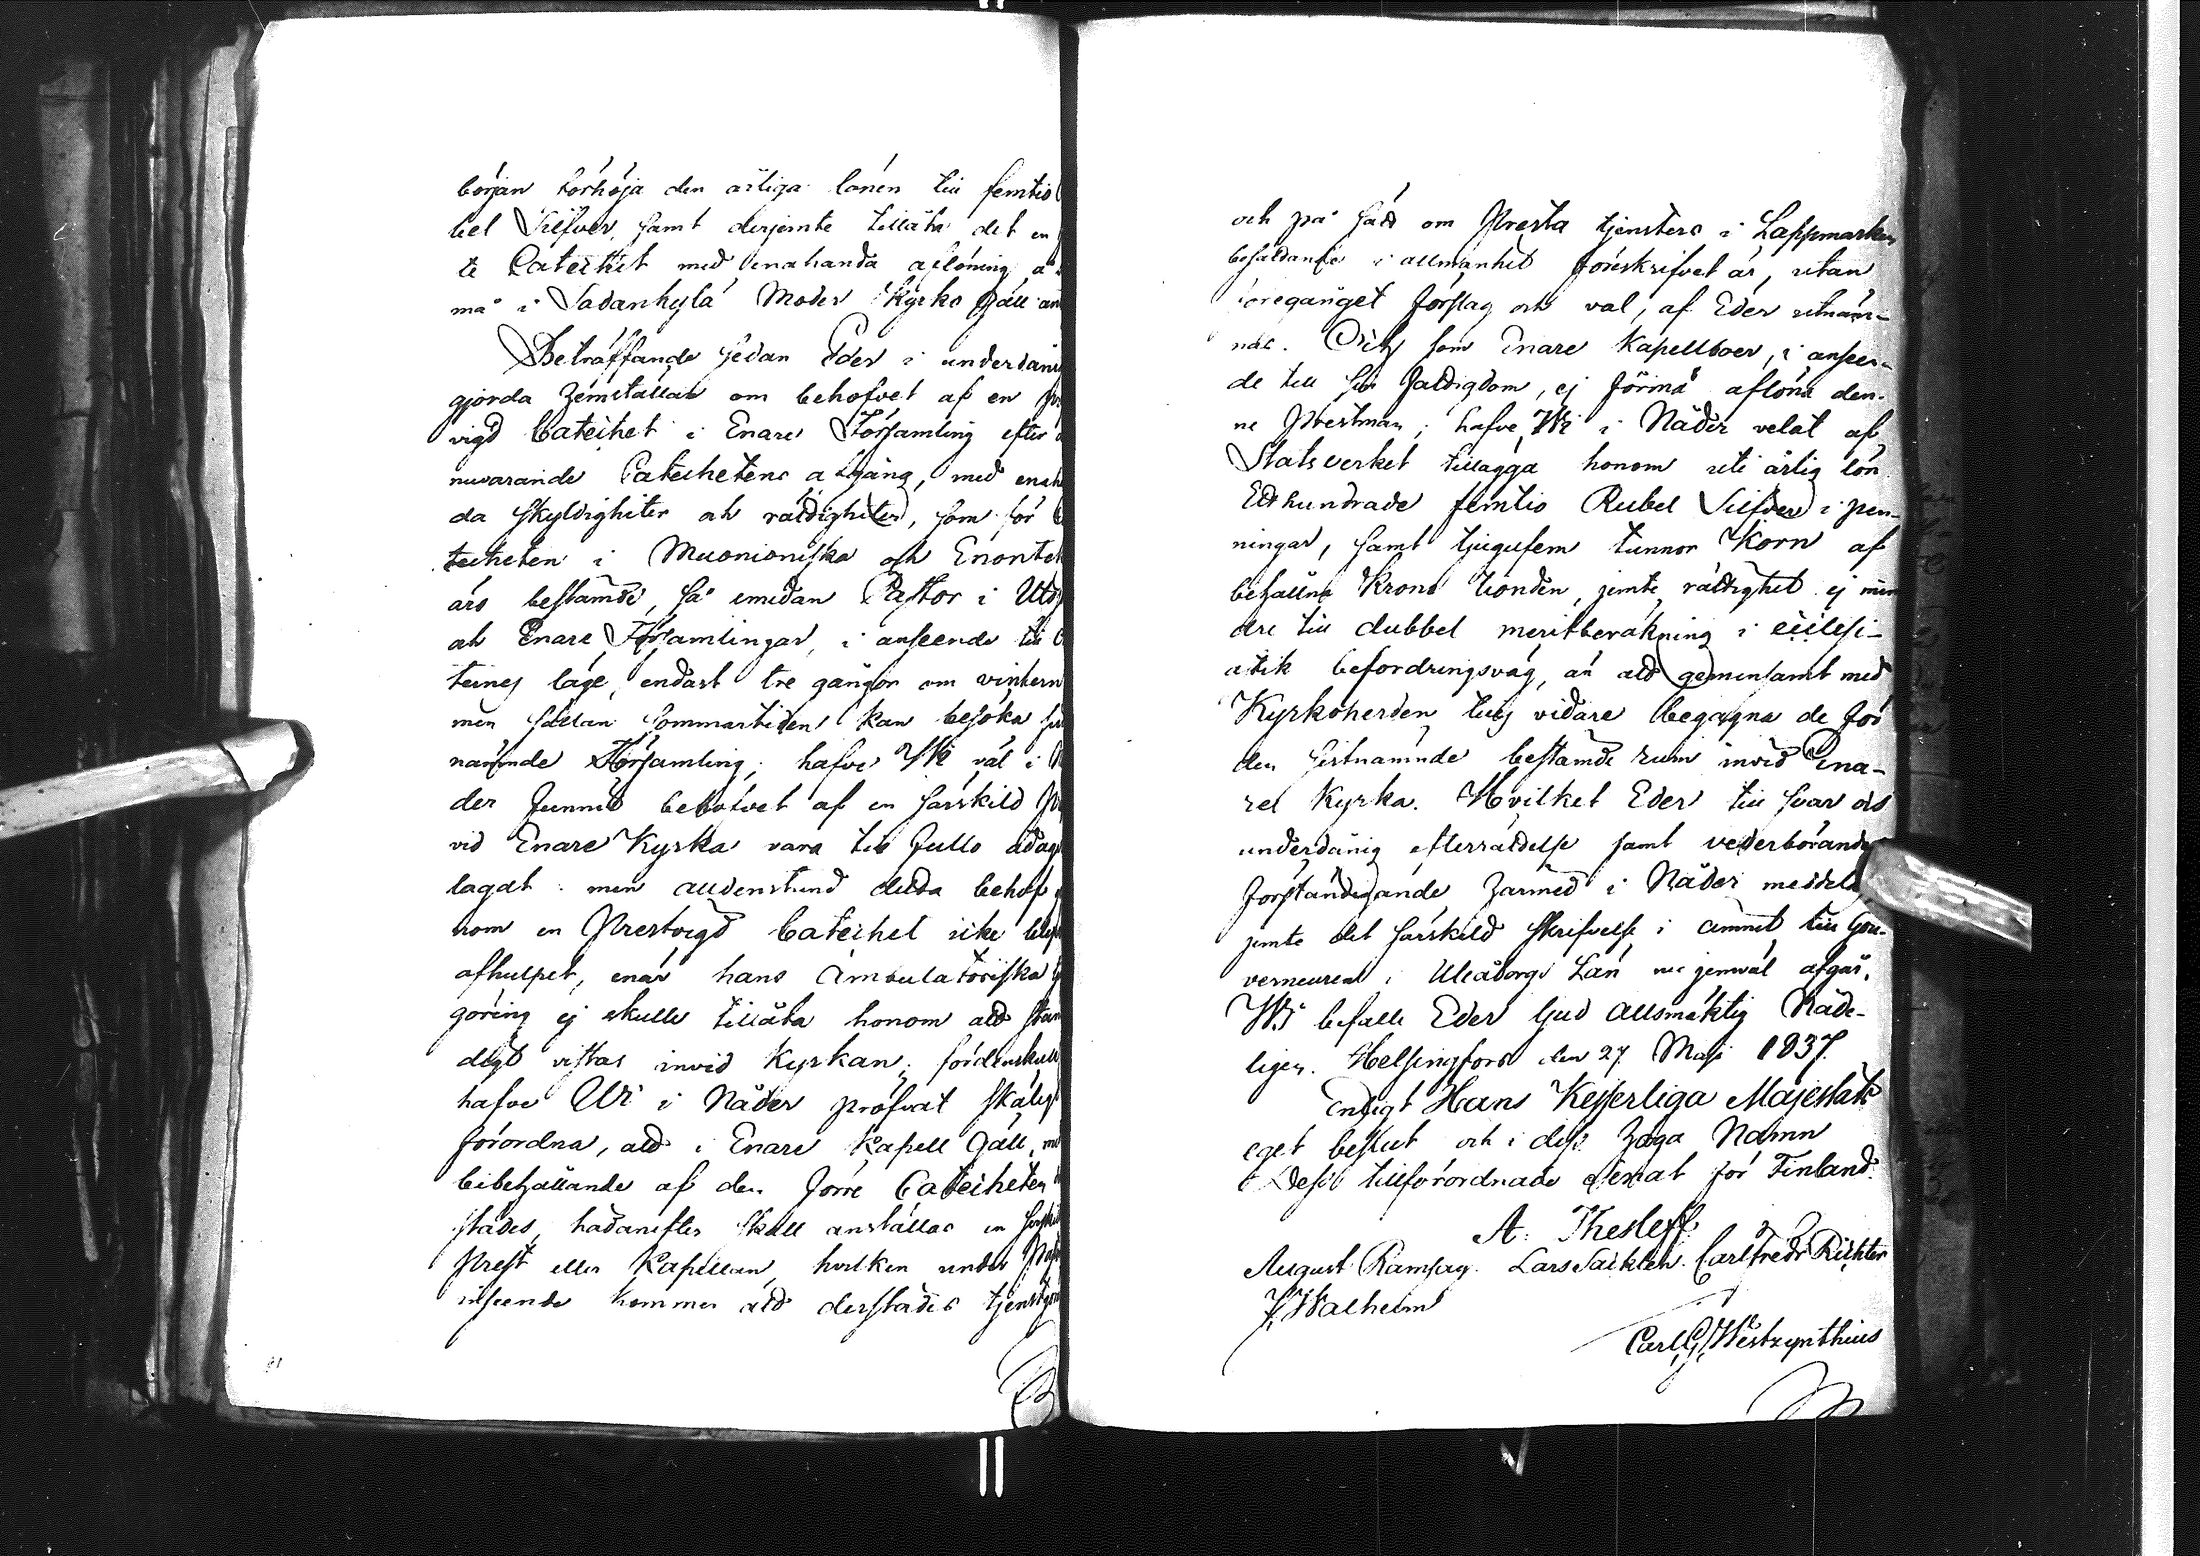 början förhöja den årliga lönen till femtio
bel Silfver, samt derjemte tillåta det en
te Catechet med enahanda aflöning a
må i Sodankylä Moder Kyrko Gäll an
Beträffande sedan Eder i underdåni
gjorda hemställan om behofvet af en Pr
vigd Catechet i Enare Församling efter
nuvarande Catechetens afgång, med enah
da skyldigheter och rättigheter, som för C
techeten i Muonioniska och Enontek
äro bestämde, så emedan Pastor i Uts
och Enare Församlingar, i anseende till O
ternes läge, endast tre gånger om vintern
men sällan sommartiden kan besöka se
nämnde Församling; hafve Wi väl i N
der funnit behofvet af en särskild Pr
vid Enare Kyrka vara till fullo ådaga
lagdt: men alldenstund detta behof
nom en Prestvigd Catechet icke blef
afhulpet, enär hans ambulatoriska
göring ej skulle tillåta honom att stän
digt vistas invid Kyrkan; fördenskull
hafve Wi i Nåder pröfvat skäligt
förordna, att i Enare Kapell Gäll, me
bibehållande af den förre Catecheten
städes, hädanefter skall anställas en särskil
Prest eller Kapellan, hvilken under Past
inseende kommer att derstädes tjenstgöra
och på sätt om Presta tjensters i Lappmarken
besättande i allmänhet föreskrifvet är, utan
föregånget förslag och val, af Eder utnäm-
nas. Och som Enare Kapellboer, i anseen-
de till sin fattigdom, ej förmå aflöna den-
ne Prestman; hafve Wi i Nåder velat af
Statsverket tillägga honom uti årlig lön
Etthundrade femtio Rubel Silfver i pen-
ningar, samt tjugufem tunnor Korn af
behållna Krono tionden, jemte rättighet ej min
dre till dubbel meritberäkning i ecclesi-
astik befordringsväg, än att gemensamt med
Kyrkoherden tills vidare begagna de för
den sistnämnde bestämde rum invid Ena-
re Kyrka. Hvilket Eder till svar och
underdånig efterrättelse samt vederbörandes
förständigande härmed i Nåder meddelas
jemte det särskild skrifvelse i ämnet till Gou-
verneuren i Uleåborgs Län nu jemväl afgår.
Wi befalle Eder Gud Allsmäktig Nåde-
ligen. Helsingfors den 27 Maji 1837.
Enligt Hans Kejserliga Majestäts
eget beslut och i dess höga Namn
Dess tillförordnade Senat för Finland.
A. Thesleff.
August Ramsay. Lars Sackleen. Carl Fredr Richter
J. Walheim
Carl G. Westzynthius